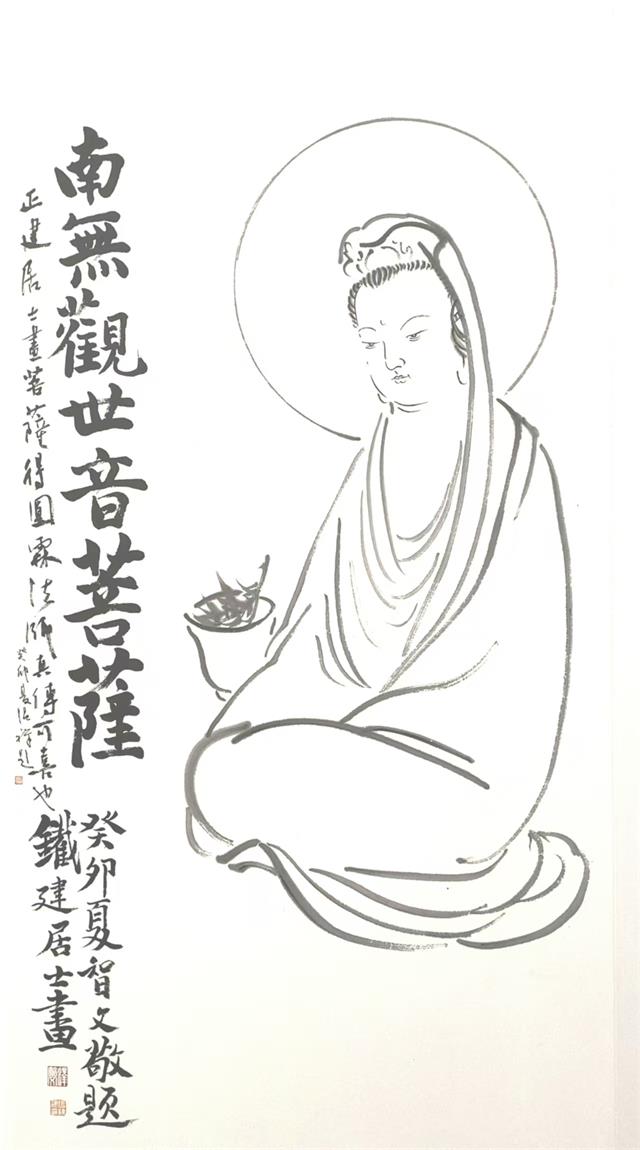 南無觀世音菩薩
癸卯夏智文敬題
鐵建居士畫
正建居士畫菩薩得圓霖法師真傳可喜也
癸卯夏
題